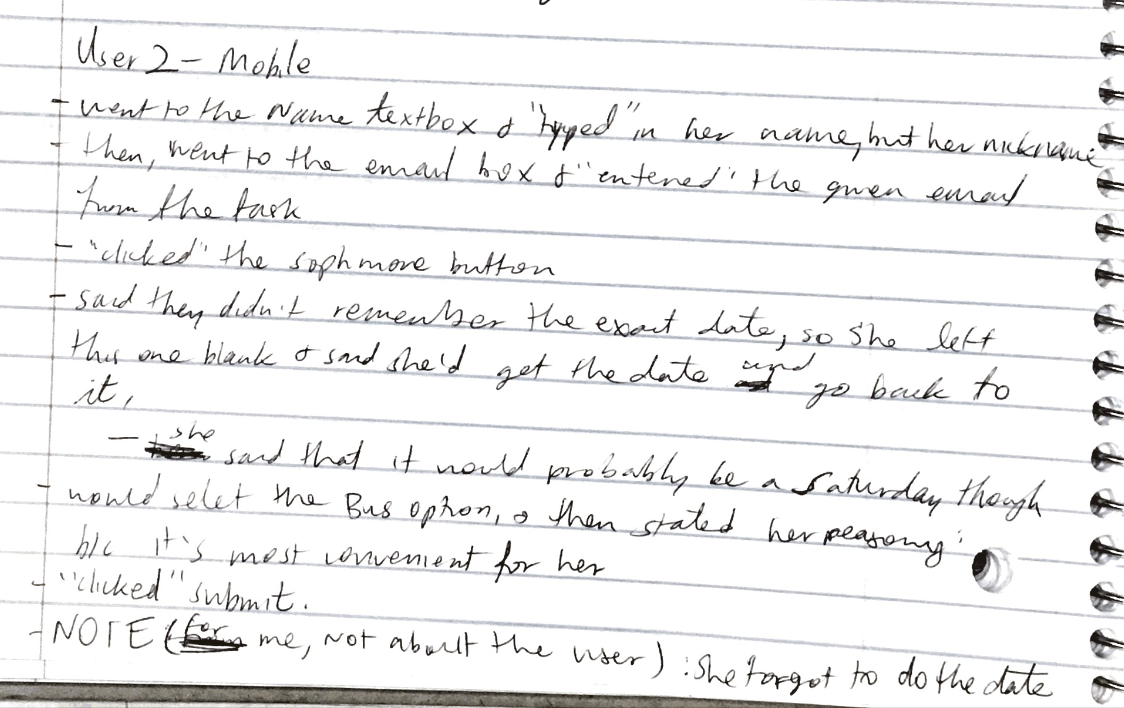 User 2 - Mobile
- went to the Name textbox & "typed" in her name, but her nickname
- then, went to the email box & "entered" the given email
from the task
- "clicked" the sophmore button
- said they didn't remember the exact date, so she left
this one blank & said she'd get the date and go back to
it,
- she said that it would probably be a Saturday though
- would selet the Bus option, & then stated her reasong:
b/c it's most convenient for her
- "clicked" submit.
- NOTE (for me, not about the user): She forgot to do the date